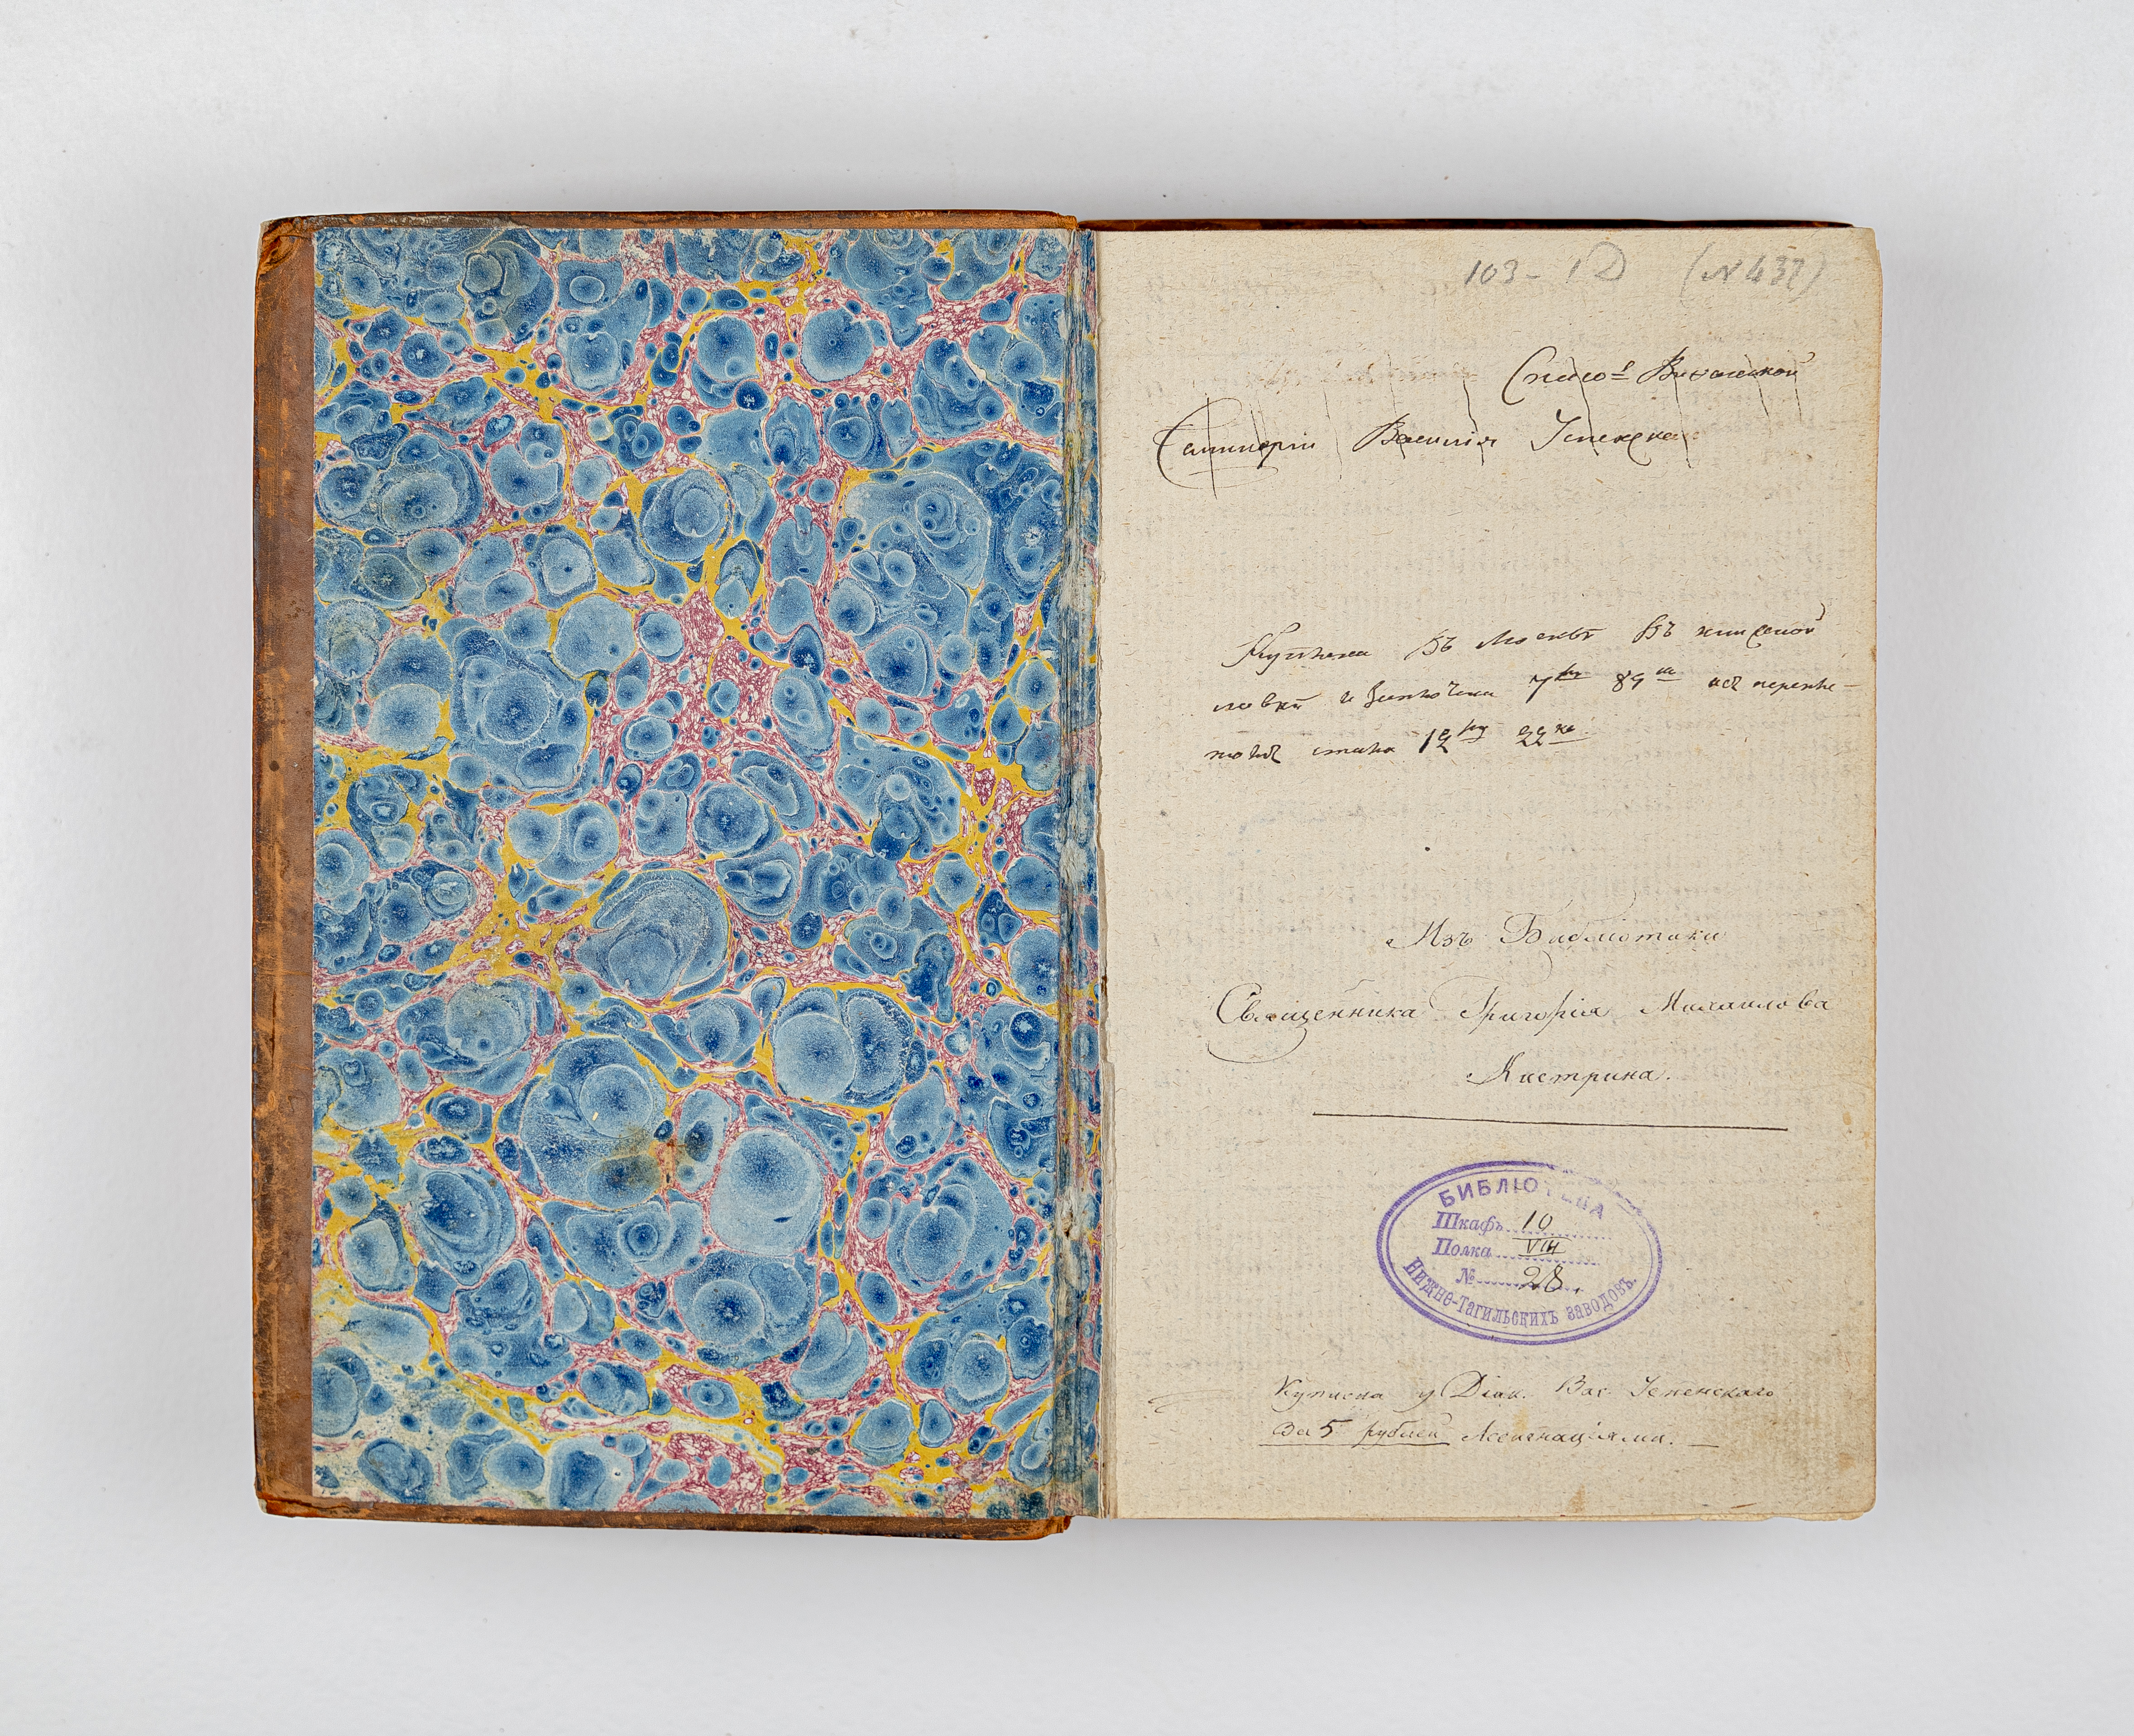 103 - 1D (N 437)
Спасо = Виѳанской
Семинаріи Василія Успенска
Куплена Въ Москвѣ Въ книжной
7 89
12 22
Изъ Библіотики
Священника Григорія Михаилова
Кастрина.
БИБЛІОТЕКА
Шкафъ 10
Полка VIII
№ 28.
НИЖНЕ-ТАГИЛЬСКИХЪ ЗАВОДОВЪ.
Куплена у Діак. Вас. Успенскаго
За 5 рублей Ассигнаціями.